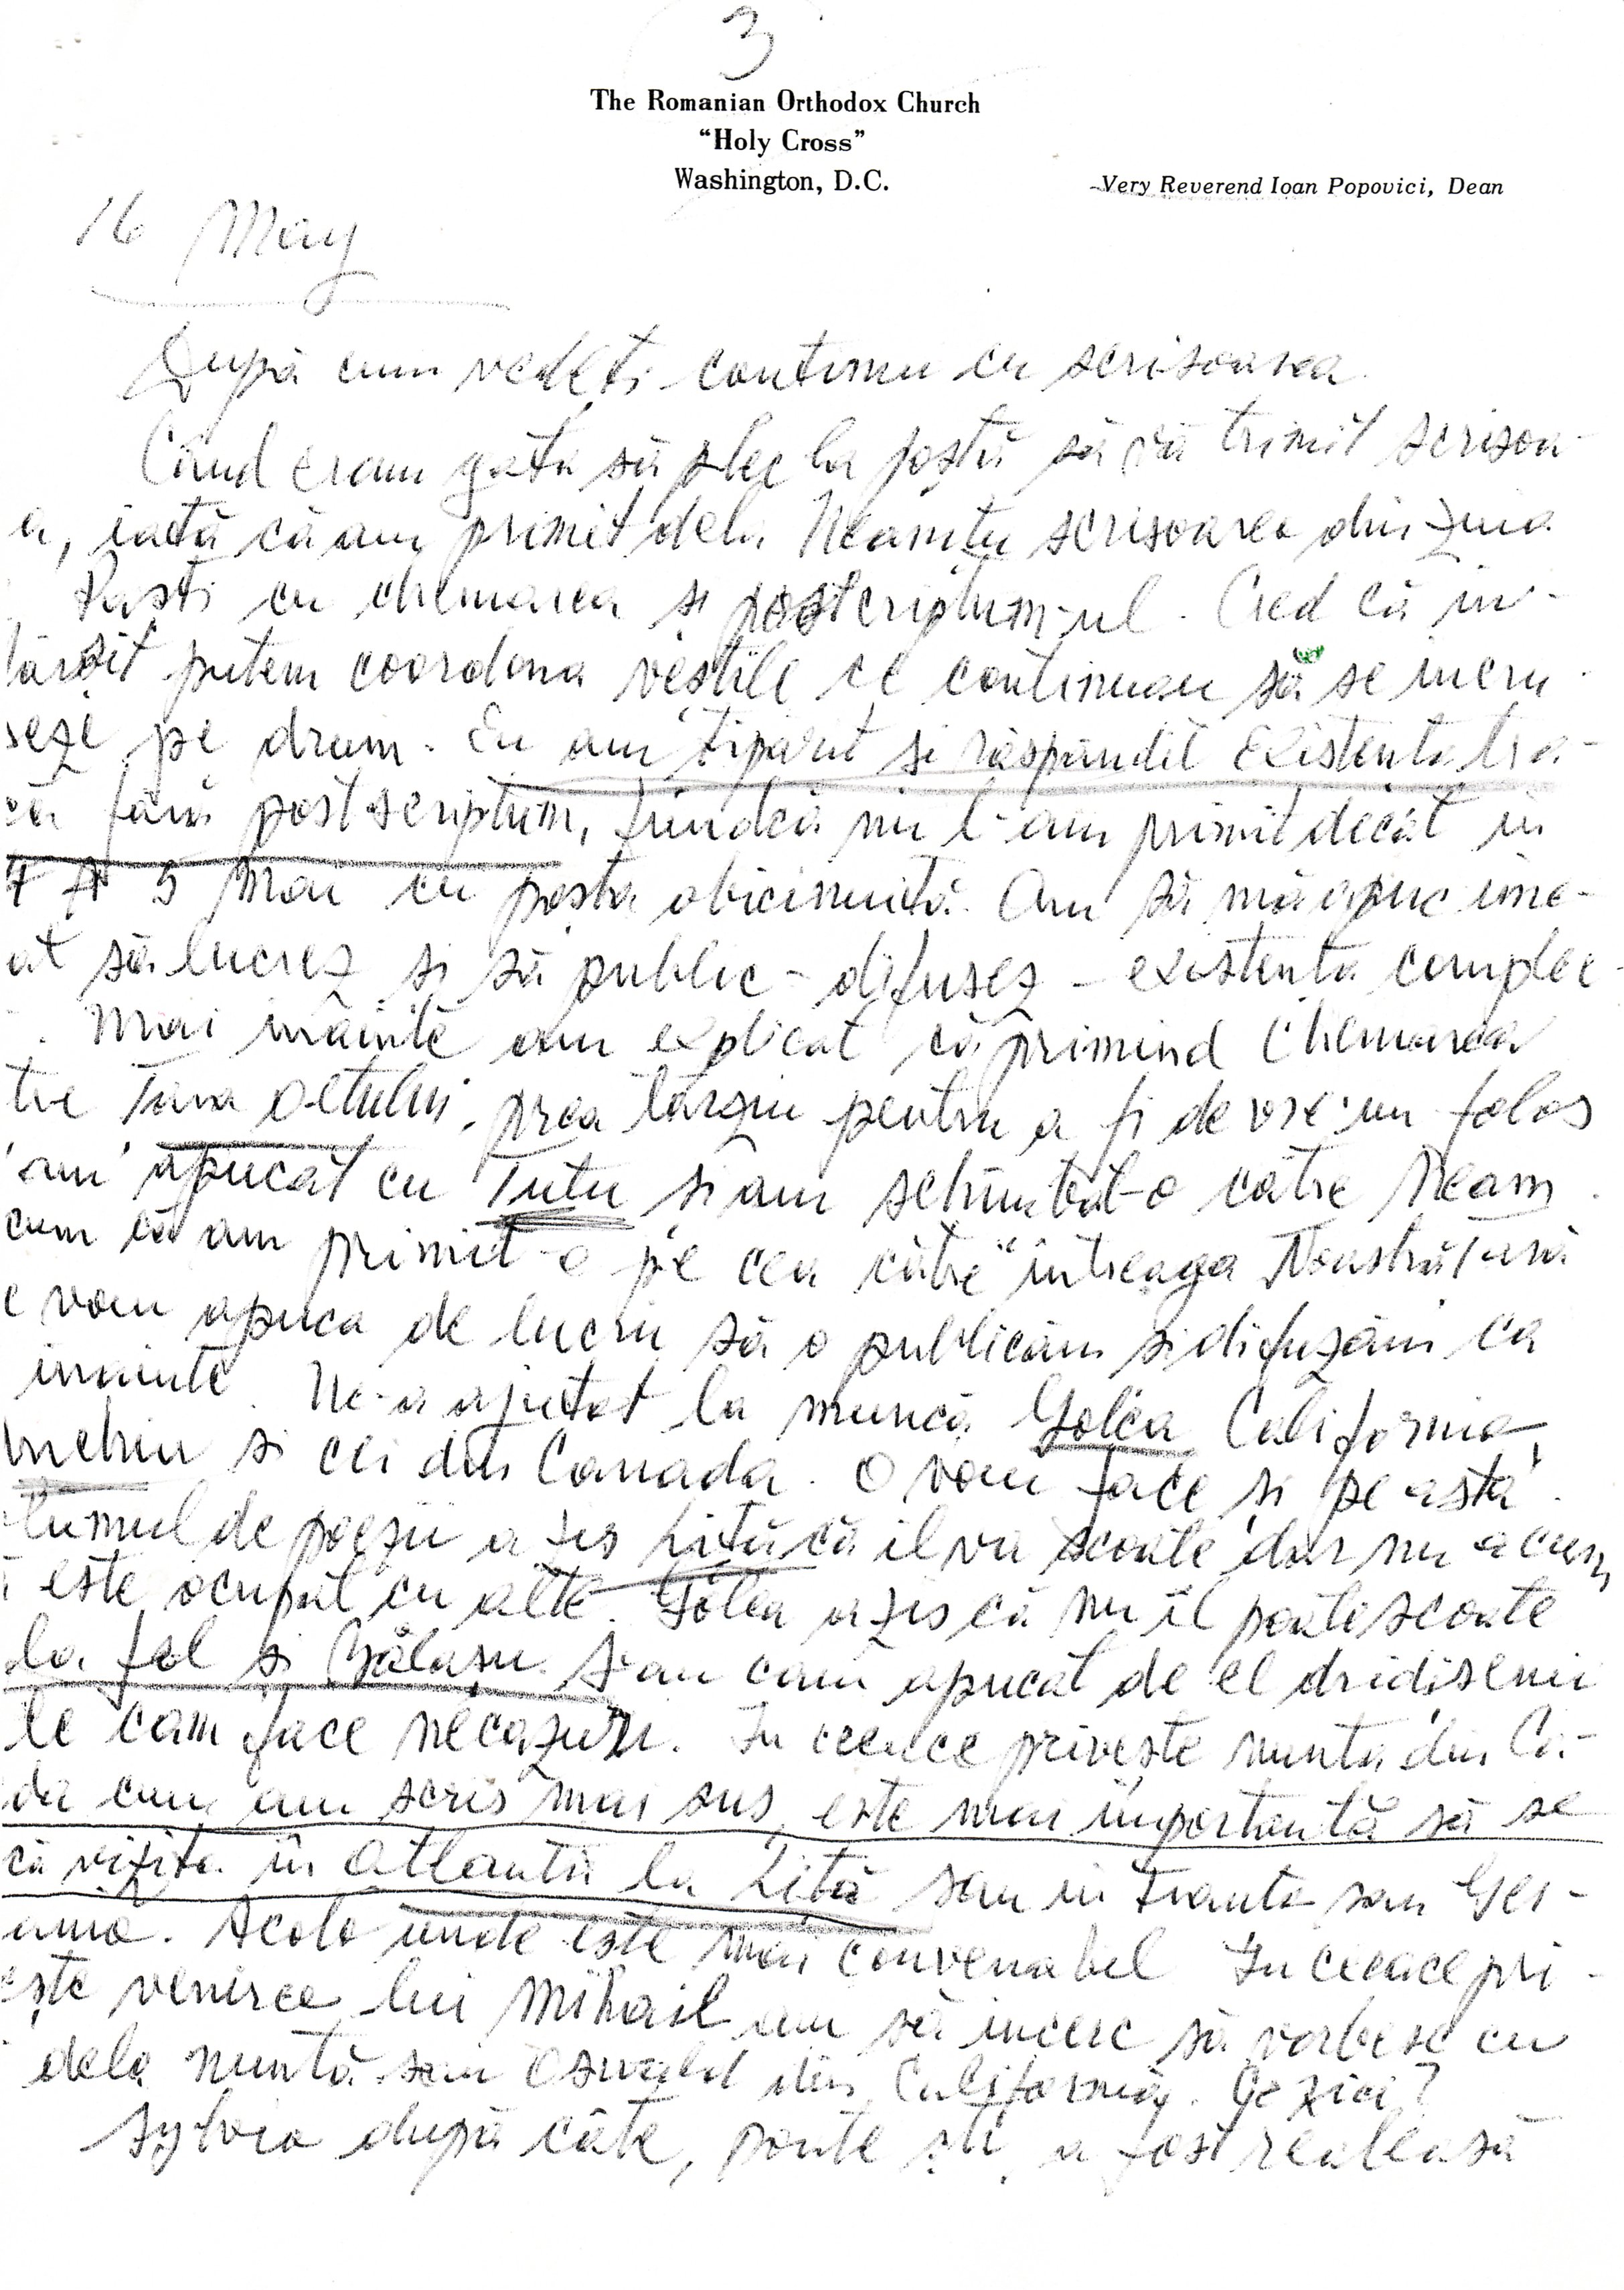 3
The Romanian Orthodox Church
“Holy Cross”
Washington, D.C.
Very Reverend Ioan Popovici, Dean
16 May
După cum vedeți continuu cu scrisoarea.
Când eram gata să plec la poștă să vă trimit scrisoa-
a, iată că am primit dela Neamțu scrisoarea din ziua
Paști cu chemarea și postscriptum-ul. Cred că în-
târzit putem coordona veștile ce continuau să se incru
seze pe drum. Eu am tiparit si răspândit Existenta tra-
că fără post-scriptum, fiindcă nu l-am primit decât in
5 Mai cu poșta obicinuită. Am să mă apuc ime-
at să lucrez si să public - difuzez - existenta complec-
. Mai inăinte am explicat că primind Chemarea
tre Tara Oltului, prea tărziu pentru a fi de vre-un folos
am apucat cu Tutu si am schimbat-o către Neam.
cum că am primit-o pe cea către "intreaga Noastră Tară
e vom apuca de lucru să o publicăm si difuzăm ca
inainte. Ne-a ajutat la muncă Golea California,
si cei din Canada. O vom face și pe asta.
lumul de poezii a zis Lită că il va scoate dar nu acum,
este ocupat cu alte. Golea a zis că nu îl poate scoate
la fel si Bălașu. S-au cam apucat de el dridisenii
le cam face necazuri. In ceeace priveste nunta din Ca-
da cum am scris mai sus, este mai importantă să se
că vizita in Atlanta la Lită sau in Franta sau Ger-
ania. Acolo unde este mai convenabil. In ceeace pri-
ește venirea lui Mihail am să incerc să vorbesc cu
dela nuntă sau Oswald din California. Ce zici?
Sylvia după câte, poate ști, a fost realeasă